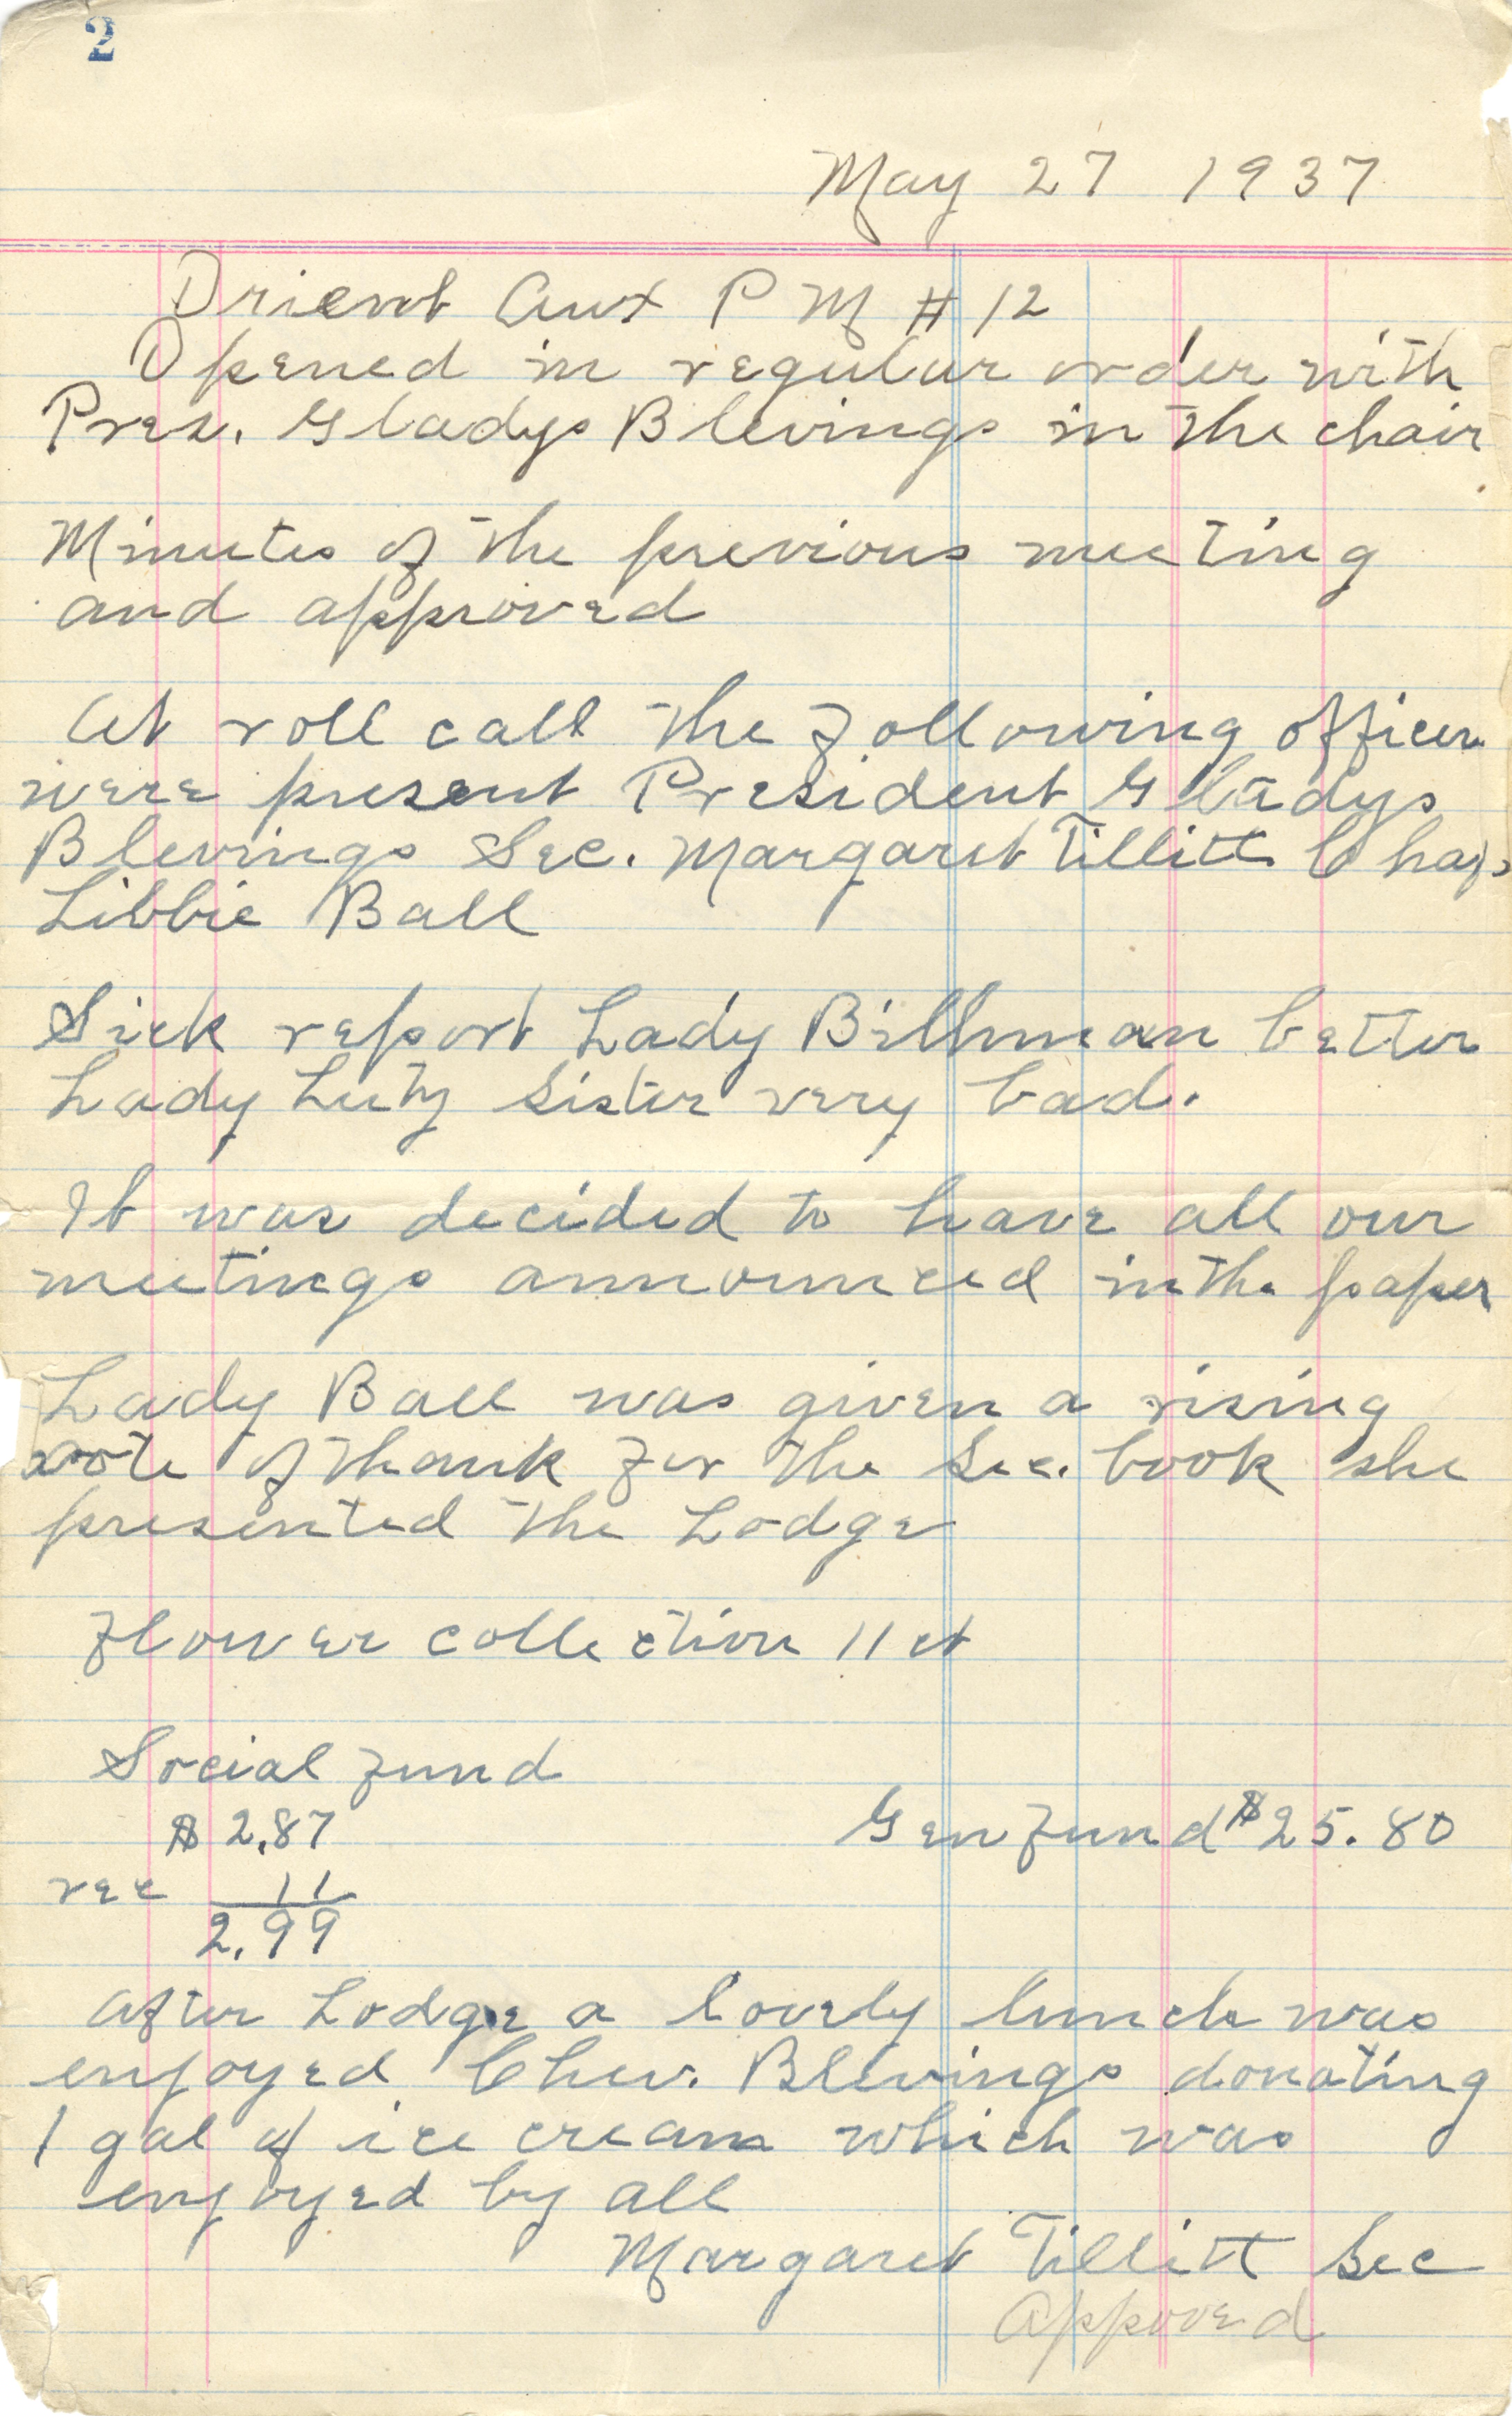 2
May 27 1937
Orient Aux P M # 12
Opened in regular order with
Pres. Gladys Blevings in the chair
Minutes of the previous meeting
and approved
At roll call the following officers
were present President Gladys
Blevings Sec. Margaret Tillitt Chap
Libbie Ball
Sick report Lady Billman better
Lady Lutz sister very bad.
It was decided to have all our
meetings announced in the paper
Lady Ball was given a rising
vote of thank for the Sec. book she
presented the Lodge
Flower collection 11 ct
Social fund
$ 2.87
Gen fund $25.80
rec 11
2.99
After Lodge a lovely lunch was
enjoyed Chev. Blevings donating
1 gal of ice cream which was
enjoyed by all
Margaret Tillitt Sec
Appoved